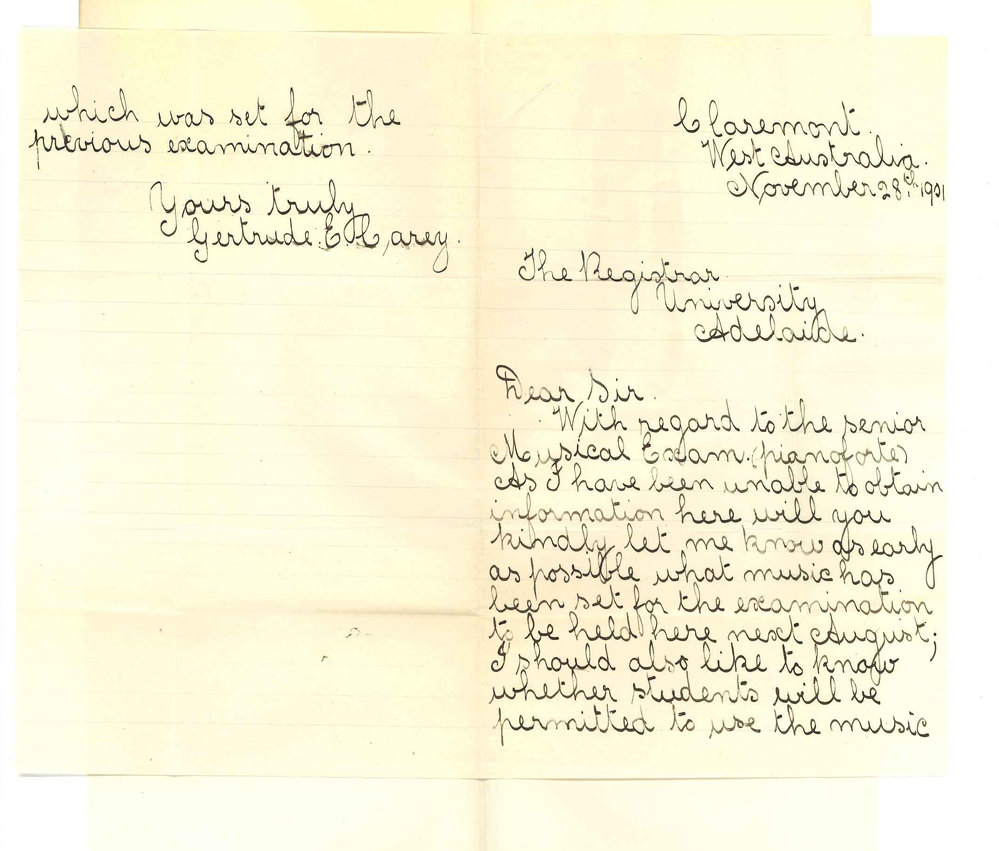 Claremont.
West Australia.
November 28th 1901
The Registrar
University
Adelaide.
Dear Sir.
With regard to the senior
Musical Exam. (pianoforte)
As I have been unable to obtain
information here will you
kindly let me know as early
as possible what music has
been set for the examination
to be held here next August;
I should also like to know
whether students will be
permitted to use the music
which was set for the
previous examination.
Yours truly
Gertrude. E Carey.